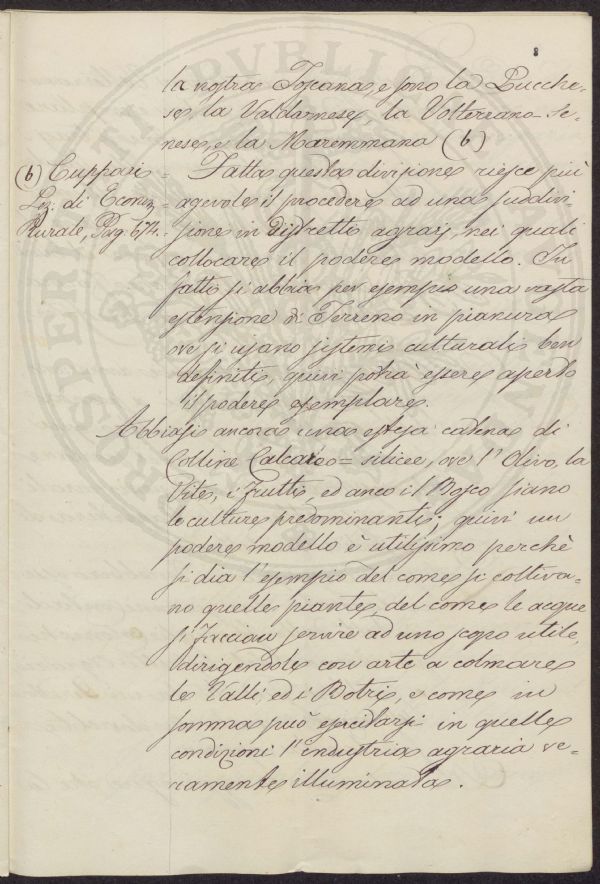 8
la nostra Toscana, e sono la Lucche-
se, la Valdarnese, la Volterrano-Se-
nese, e la Maremmana (b)
(b) Cuppari
Lez: di Econ:
Rurale, Pag. 674.
= Fatta questa divisione riesce più
= agevole il procedere ad una suddivi
= sione in Distretti agrarj, nei quali
collocare il podere modello. In
fatti si abbia per esempio una vasta
estensione di Terreno in pianura
ove si usano sistemi culturali ben
definiti, quivi potrà essere aperto
il podere esemplare.
Abbiasi ancora una estesa catena di
Colline Calcareo=silicee, ove l'Olivo, la
Vite, i frutti, ed anco il Bosco siano
le culture predominanti; quivi un
podere modello è utilissimo perchè
si dia l'esempio del come si coltiva-
no quelle piante, del come le acque
si facciau servire ad uno scopo utile,
dirigendole con arte a colmare
le Valli, ed i Botri, e come in
somma può esercitarsi in quelle
condizioni l'industria agraria ve-
ramente illuminata.